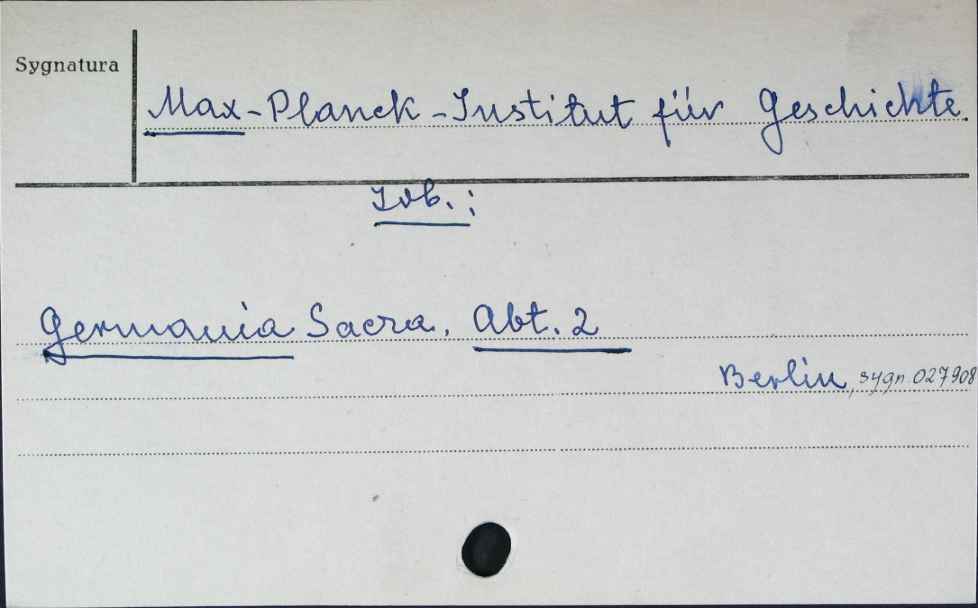 Sygnatura
Max-Planck-Institut für Geschichte.
Zob.:
Germania Sacra. Abt. 2
Berlin, sygn. 027908